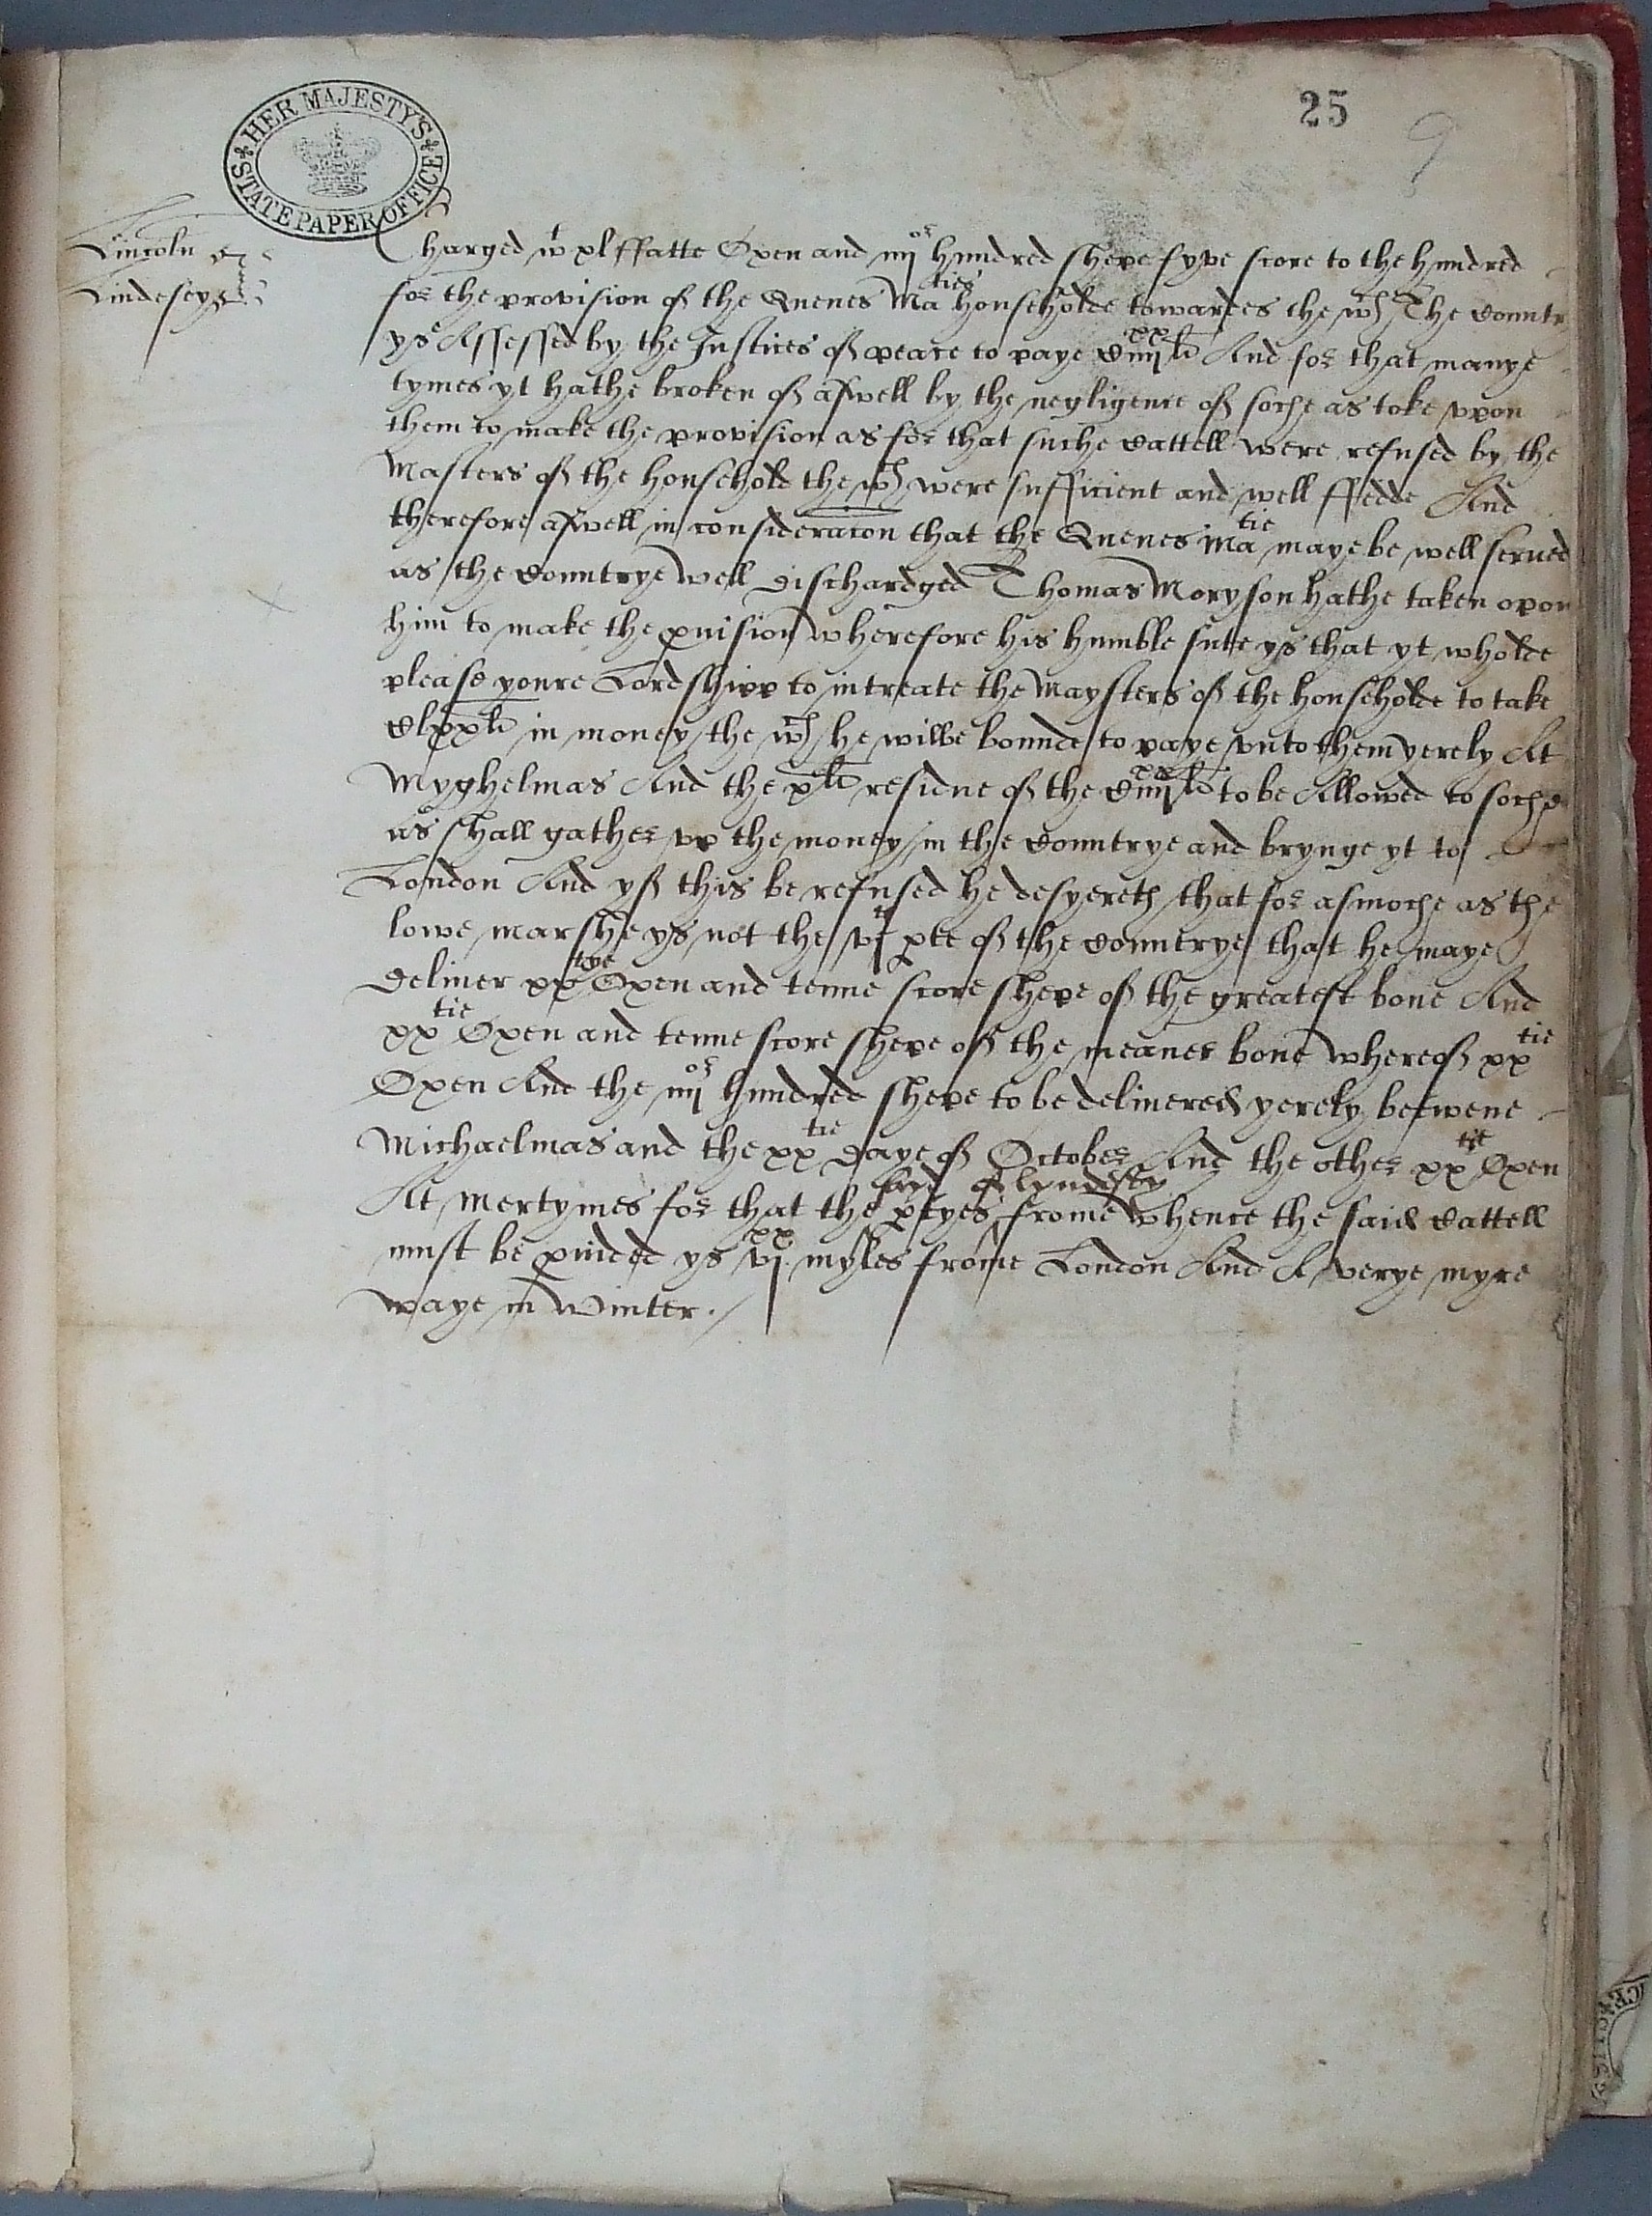 25
9
HER MAJESTY'S STATE PAPER OFFICE
Lincoln
Lindesey
Charged wt xl ffatte Oxen and iiijor hundred shepe fyve score to the hundred
for the provision of the Quenes Maties householde towardes the wch The Countr
ys Assessed by the Justices of peace to paye Ciiijxxli And for that manye
tymes yt hathe broken of aswell by the negligence of soche as toke vpon
them to make the provision as for that suche Cattell were refused by the
Masters of the household the wch were sufficient and well ffedde And
therefore aswell in consideracon that the Quenes Matie maye be well serued
as the Countrye well dischardged Thomas Moryson hathe taken opon
him to make the puision wherefore his humble sute ys that yt wholde
please youre Lordshipp to intreate the Maysters of the householde to take
Clxxli in money the wch he wilbe bounde to paye vnto them yerely At
Myghelmas And the xli residue of the Ciiijxxli to be Allowed to soche
as shall gather vp the money in the Countrye and brynge yt to
London And yf this be refused he desyereth that for asmoche as the
lowe marshe ys not the vjt pte of the Countrye that he maye
deliuer xxtye Oxen and tenne score shepe of the greatest bone And
xxtie Oxen and tenne score shepe of the meaner bone whereof xxtie
Oxen And the iiijor hundred shepe to be deliuered yerely betwene
Michaelmas and the xxtie daye of October And the other xxtie Oxen
sayd of lyndesey
At Mertymes for that the ptyes frome whence the said Cattell
must be puided ys vjxx myles frome London And A verye myre
waye in winter ./